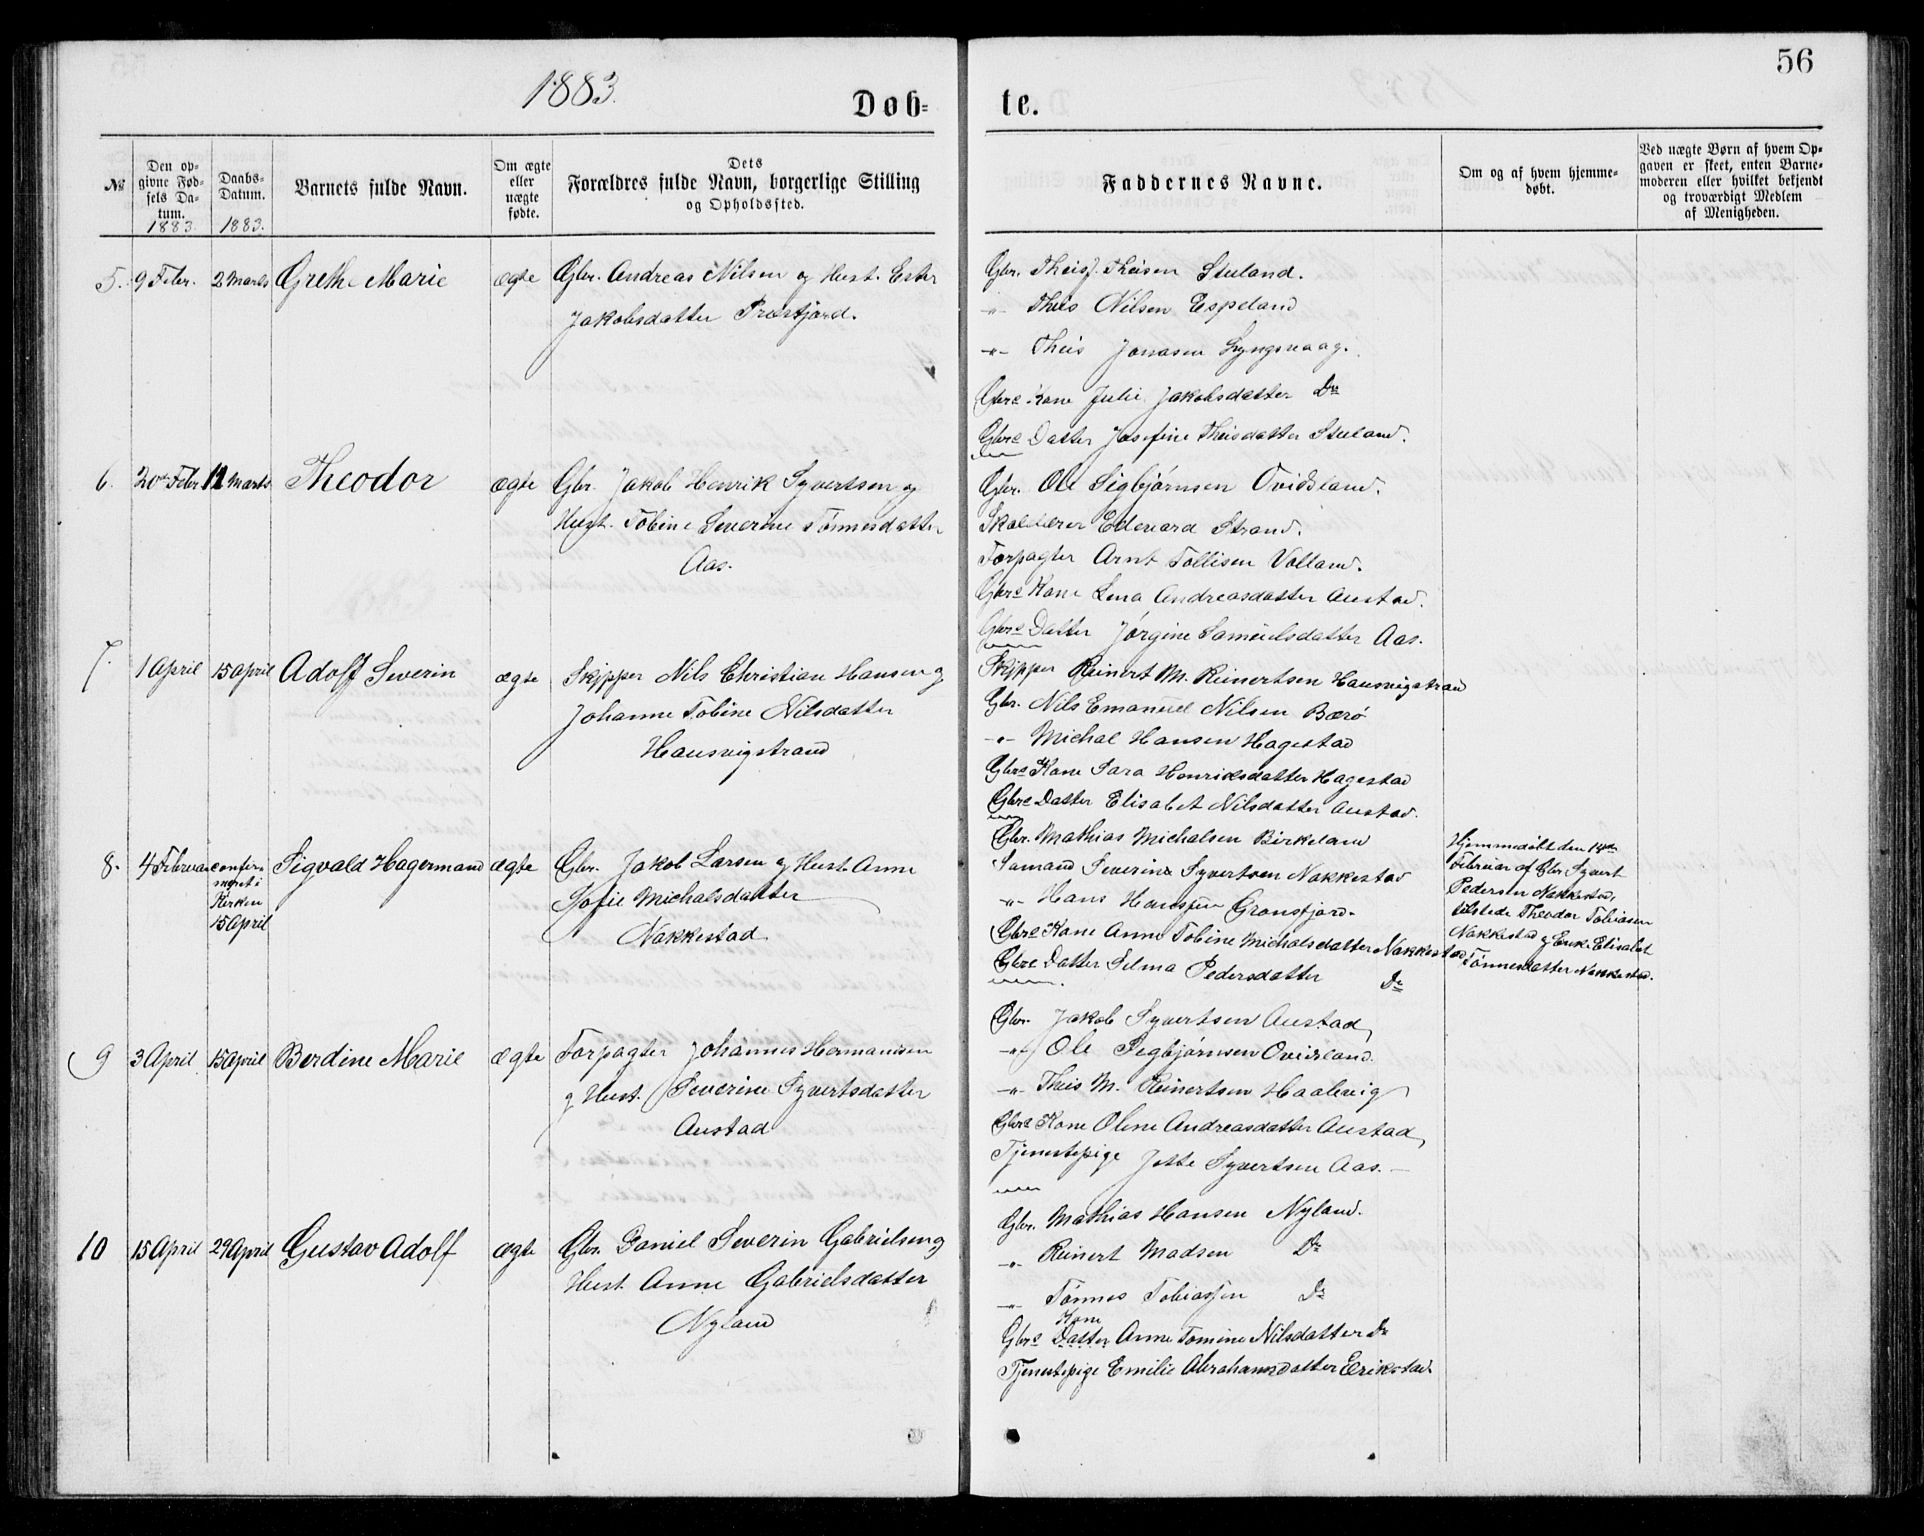 1883.
56
Døb-
te.
№
Den op-
givne Fød-
sels Da-
tum.
1883.
Daabs-
Datum.
1883.
Barnets fulde Navn.
Om ægte
eller
uægte
fødte.
Dets
Forældres fulde Navn, borgerlige Stilling
og Opholdssted.
Faddernes Navne.
Om og af hvem hjemme-
døbt.
Ved uægte Børn af hvem Op-
gaven er skeet, enten Barne-
moderen eller hvilket bekjendt
og troværdigt Medlem
af Menigheden.
5. 9 Febr. 2 Marts Grethe Marie ægte Gbr. Andreas Nilsen og Hust. Ester
Jakobsdatter Præstfjord.
Gbr. Theis J. Theisen Stuland.
-"- Theis Nilsen Espeland
-"- Theis Jonasen Lyngsvaag.
Gbre Kone Julie Jakobsdatter Do
Gbre Datter Josefine Theisdatter Stuland.
6. 20de Febr 11 Marts. Theodor ægte Gbr. Jakob Henrik Syvertsen og
Hust. Tobine Severine Tønnesdatter
Aas.
Gbr. Ole Sigbjørnsen Ovidsland.
Skolelærer Edevard Strand.
Forpagter Arnt Tollisen Volland.
Gbre Kone Lena Andreasdatter Austad.
Gbre Datter Jørgine Samuelsdatter Aas.
7. 1 April 15 April Adolf Severin ægte Skipper Nils Christian Hansen og
Johanne Tobine Nilsdatter
Hausvigstrand
Skipper Reinert M. Reinertsen Hausvigstrand
Gbr. Nils Emanuel Nilsen Berø
-"- Michal Hansen Hagestad
Gbre Kone Sara Henriksdatter Hagestad
Gbre Datter Elisabet Nilsdatter Austad.
8. 4 Februar confir-
meret i
Kirken
15 April
Sigvald Hagermand ægte Gbr. Jakob Larsen og Hust. Anne
Sofie Michalsdatter
Nakkestad
Gbr. Mathias Michalsen Birkeland
Sømand Severin Syvertsen Nakkestad
-"- Hans Hansen Grønsfjord.
Gbre Kone Anne Tobine Michalsdatter Nakkestad
Gbre Datter Selma Pedersdatter Do
Hjemmedøbt den 14de
Februar af Gbr. Syvert
Pedersen Nakkestad,
tilstede Theodor Tobiasen
Nakkestad og Enke Elisabet
Tønnesdatter Nakkestad.
9 3 April 15 April Berdine Marie ægte Forpagter Johannes Hermansen
og Hust. Severine Syvertsdatter
Austad
Gbr. Jakob Syvertsen Austad,
-"- Ole Sigbjørnsen Ovidsland.
-"- Theis M. Reinertsen Haalevig
Gbre Kone Olene Andreasdatter Austad,
Tjenestepige Jette Syvertsen Aas.
10 15 April 29 April Gustav Adolf ægte Gbr. Daniel Severin Gabrielsen og
Hust. Anne Gabrielsdatter
Nyland
Gbr. Mathias Hansen Nyland.
-"- Reinert Madsen Do
-"- Tønnes Tobiassen Do
Kone
Gbre Datter Anne Tomine Nilsdatter Do
Tjenestepige Emilie Abrahamsdatter Erikstad